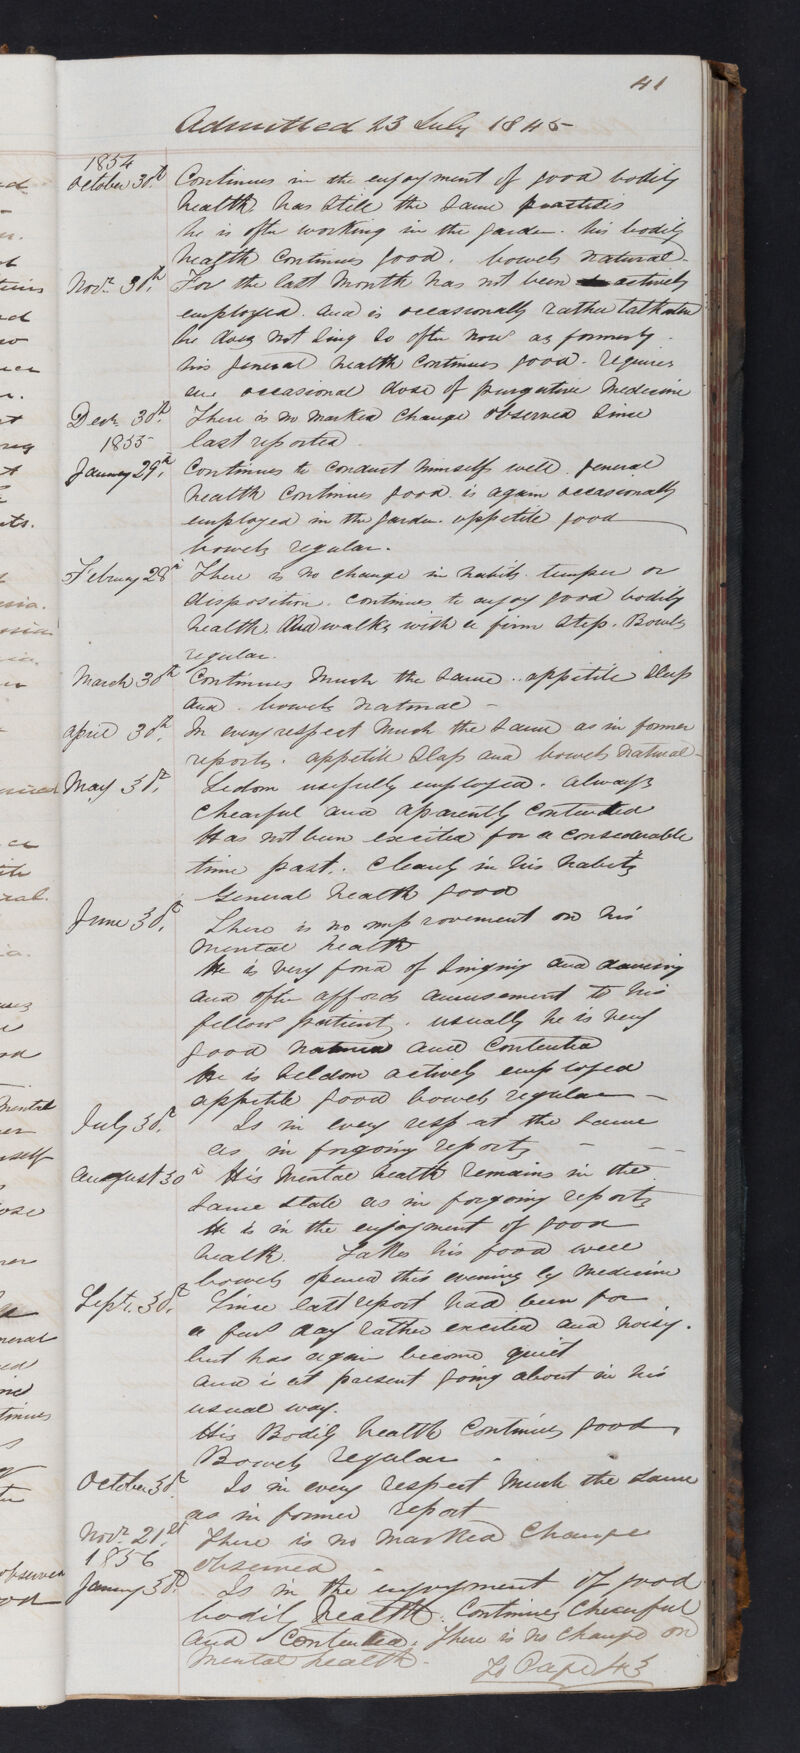 41
Admitted 23 July 1845
1854
October 30th Continues in the enjoyment of good bodily
health has still the same
he is often working in the garden. his bodily
health Continues good. bowels natural -
Novr 30th For the last Month has not been actively
employed. and is occasionally rather talkative
he does not Sing So often Now as formerly.
his general health Continues good. requires
an occasional dose of purgative Medicine
Decr 30th There is no marked Change observed Since
1855 last reported
January 29th Continues to Conduct himself well. general
health Continues good. is again occasionally
employed in the garden. appetite good
bowels regular.
February 28th There is no change in habits temper or
disposition. Continues to enjoy good bodily
health. And walks with a firm Step. Bowels
regular.
March 30th Continues Much the Same. appetite Sleep
and bowels natural -
April 30th In every respect Much the Same as in former
reports. appetite Sleep and bowels natural -
May 30th Seldom usefully employed. always
Chearful and aparently Contented
Has not been excited for a Considerable
time past. Cleanly in his habits
General health good
June 30th There is no improvement on his
Mental health
He is Very fond of Singing and dancing
and often affords amusement to his
fellow patients. usually he is very
good natured and Contented
He is Seldom actively employed
appetite good bowels regular -
July 30th Is in every respect the Same
as in forgoing reports - - -
August 30th His Mental health remains in the
Same State as in forgoing reports
He is in the enjoyment of good
health Takes his food well
bowels opened this evening by Medicine
Sept. 30th Since last report had been for
a few day rather excited and noisy.
but has again become quiet
and is at present going about in his
usual way.
His Bodily health Continues good
Bowels regular.
October 30th Is in every respect Much the Same
as in former report
Novr 21st There is no marked Change
1856 observed.
January 30th Is in the enjoyment of good
bodily health. Continues Chearful
and Contented. There is no Change on
Mental health. To Page 43